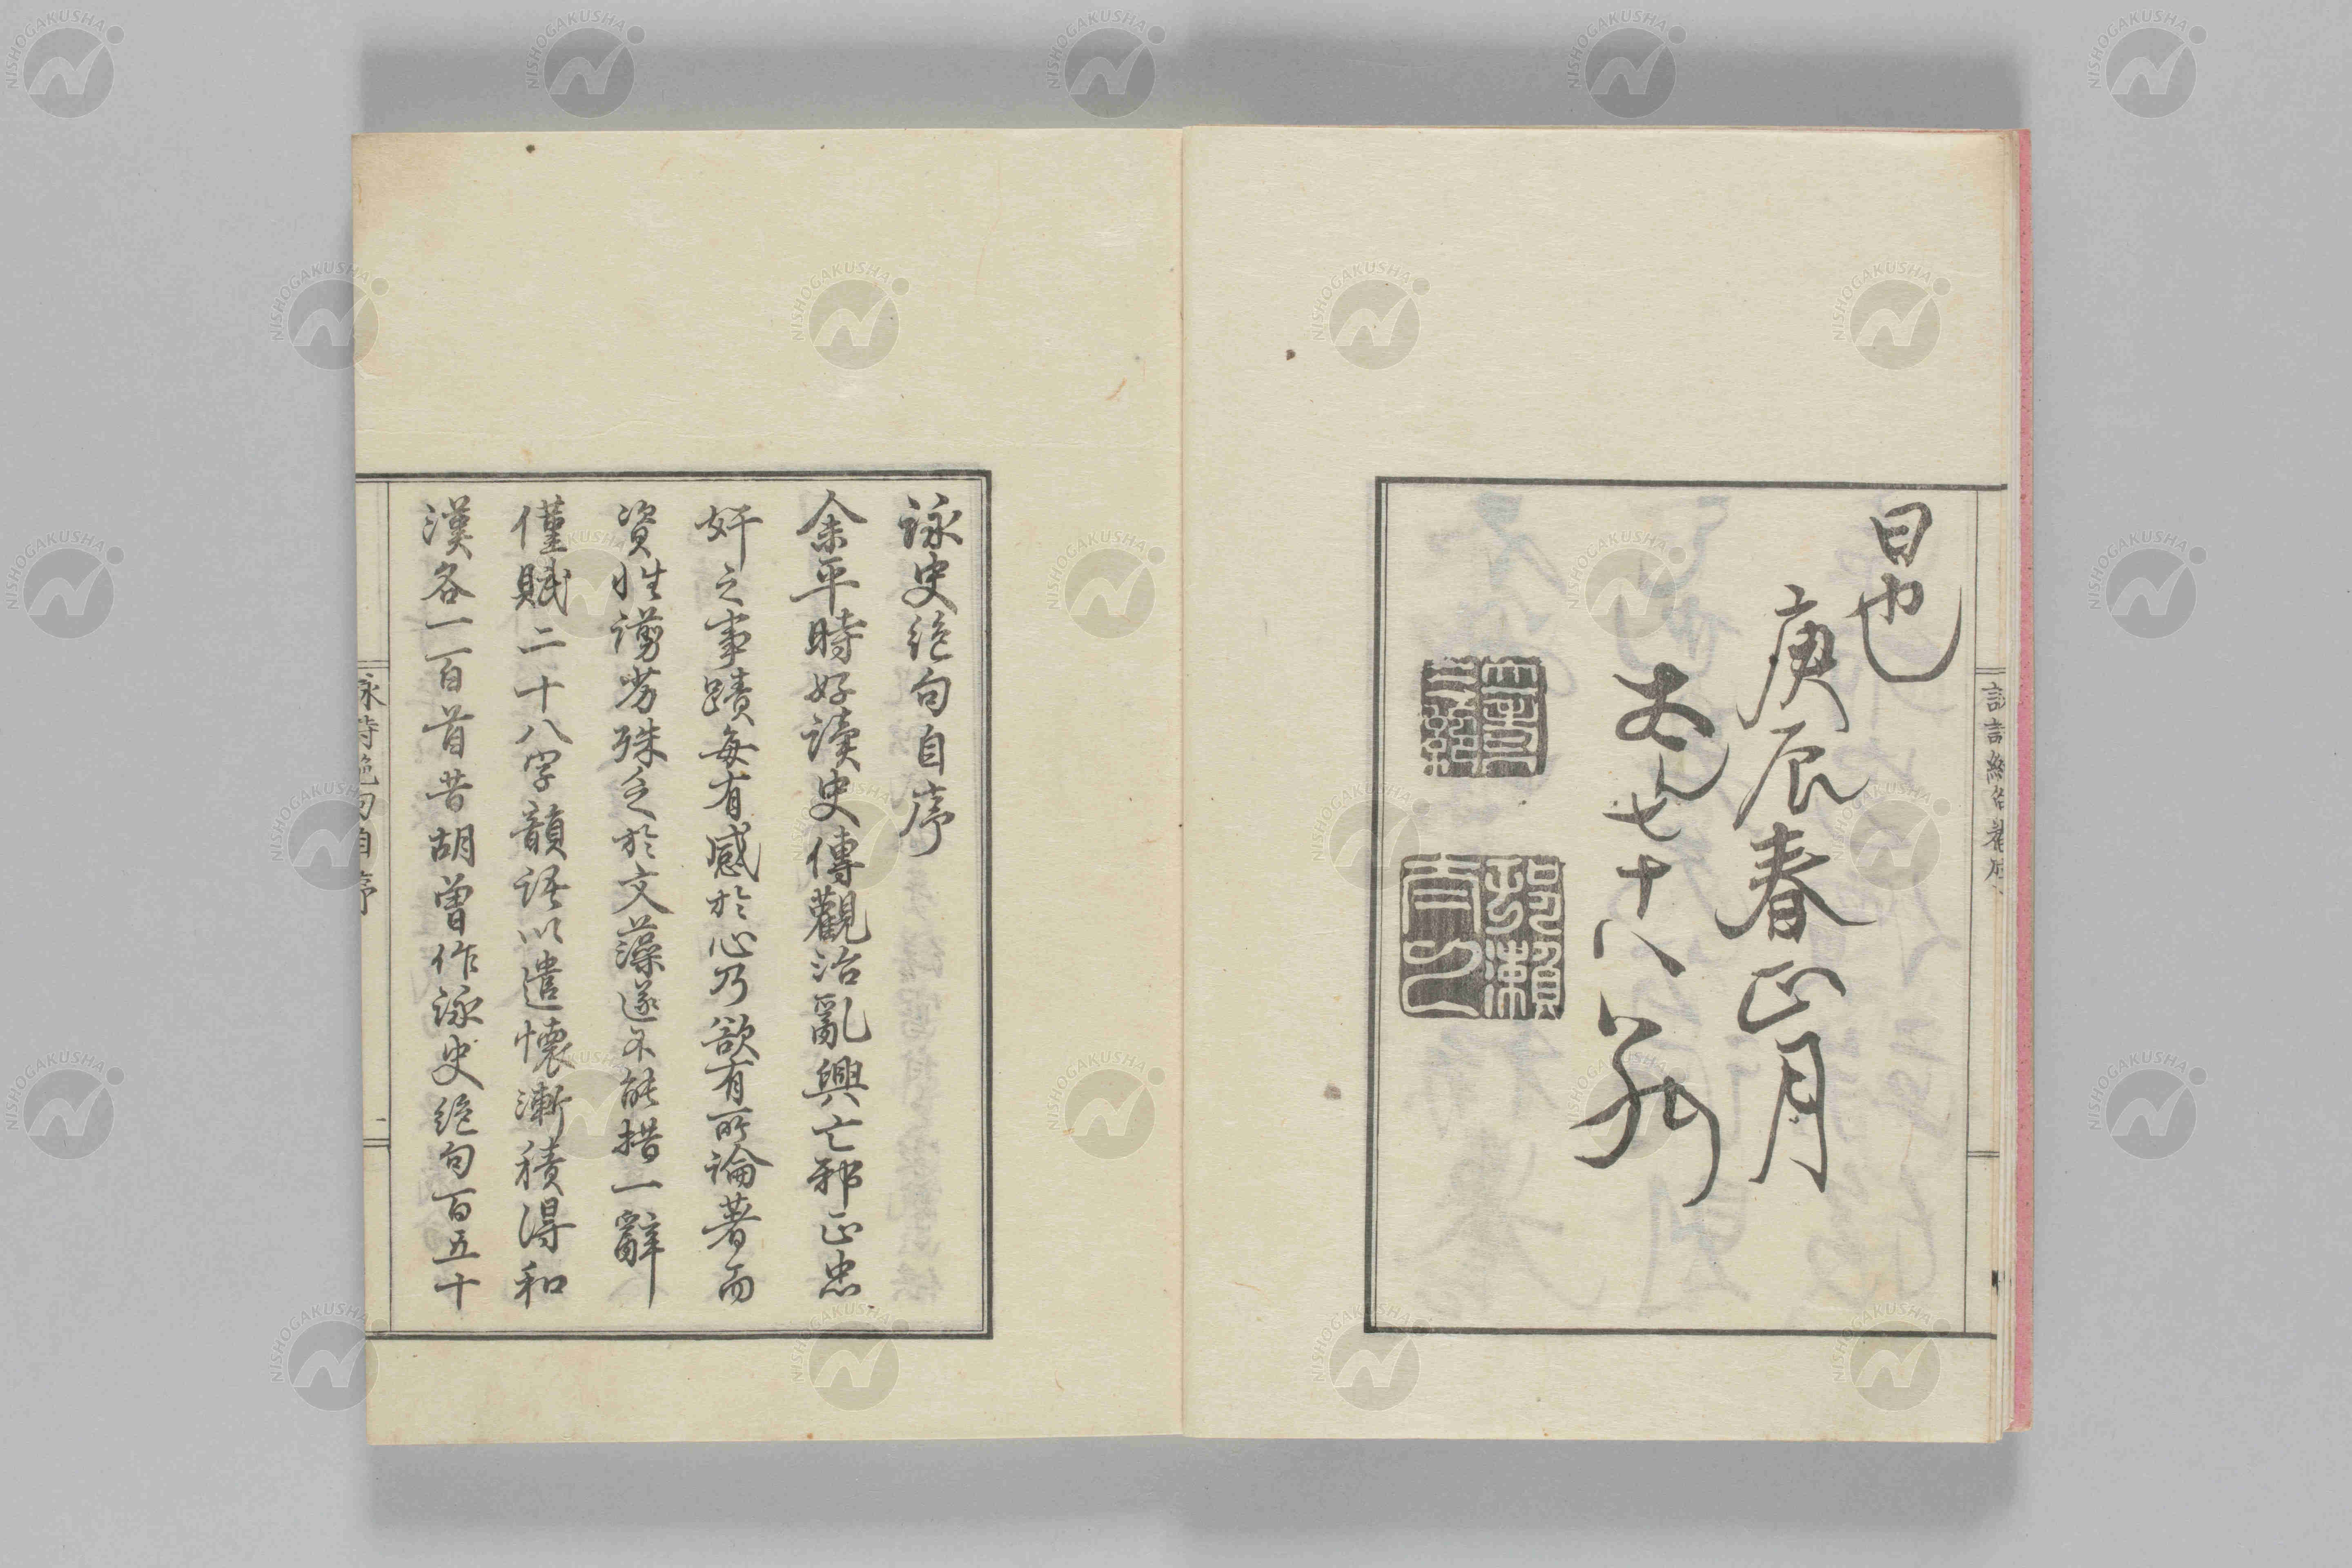 日也
庚辰春正月
七十八
詠史絶句自序
余平時好讀史傳觀治亂興亡邪正忠
奸之事蹟每有感於心乃欲有所論著而
資性謭劣殊乏於文藻遂不能措一辭
僅賦二十八字韻語以遣懷漸積得和
漢各一百首昔胡曾作詠史絶句百五十
詠詩絶句自序
一
NISHOGAKUSHA